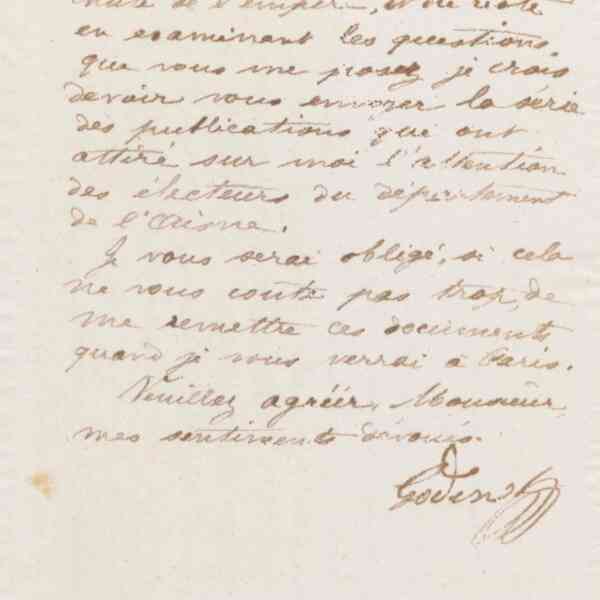 chute de l'empire, et ou reste
en examinant les questions
que vous me posez je crois
devoir vous envoyer la série
des publications qui ont
attiré sur moi l'attention
des électeurs du département
de l'Aisne.
Je vous serai obligé, si cela
ne vous coûte pas trop, de
me remettre ces documents
quand je vous verrai à Paris.
Veuillez agréer, Monsieur,
mes sentiments dévoués.
Godin